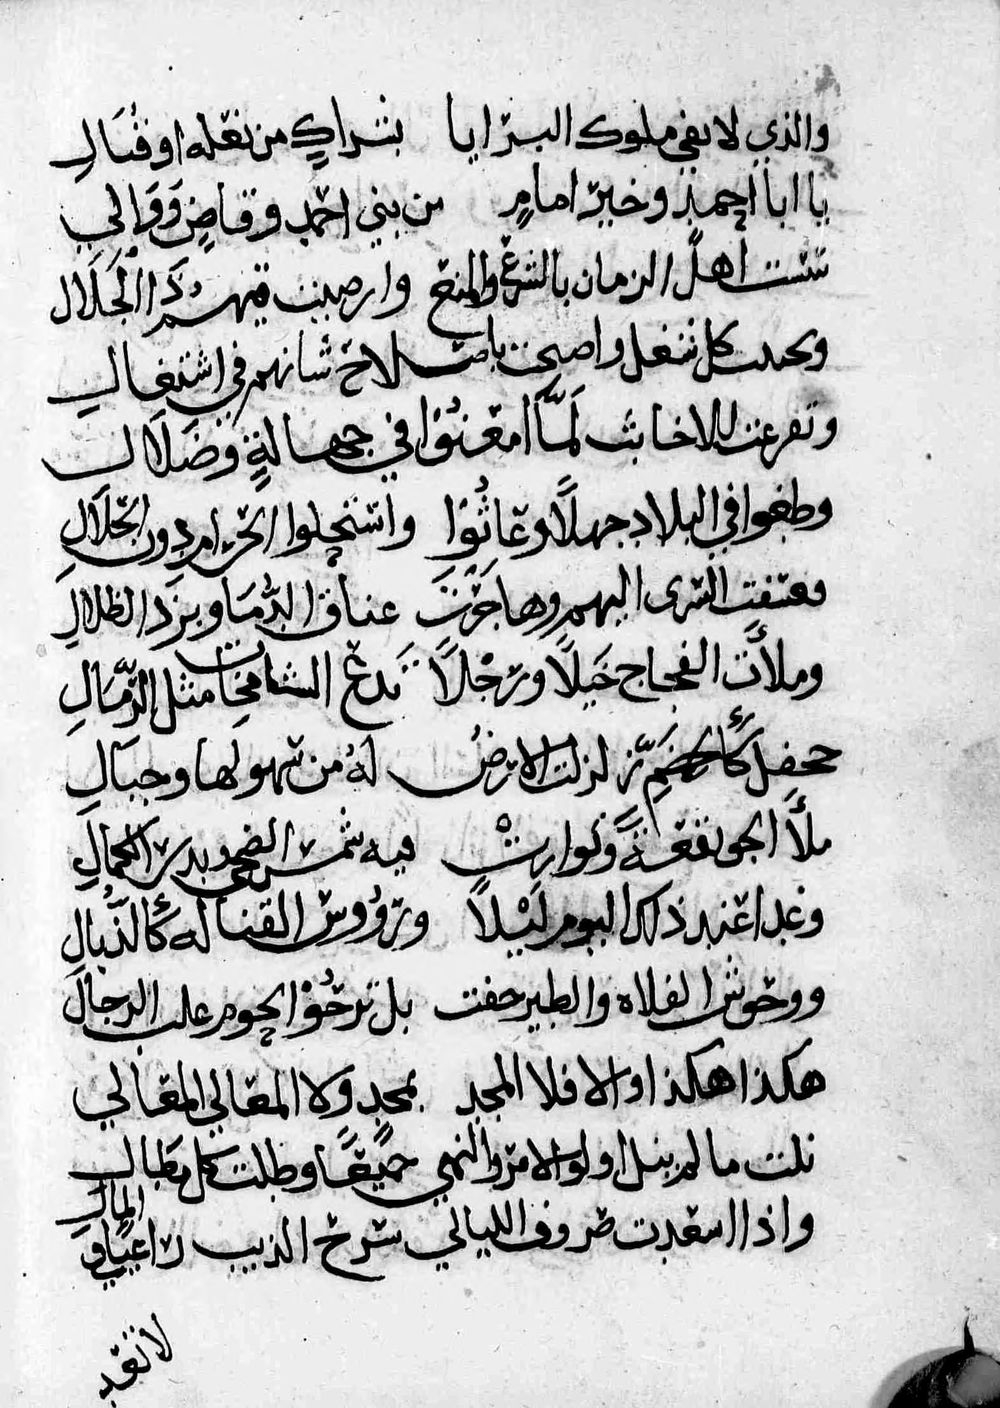 والذي لا يفي ملوك البرايا بشراكٍ من نعله او قبالِ
يا ابا احمد وخير امامٍ من بني احمد وقاضٍ وَوَالي
سست اهل الزمان بالشرع والمنع وارضيت فيهم ذَا الجَلال
كل شغل واصبحت باصـلاح شانهم في اشتغال
وتفرغت للاخابث لمَّا امعنُوا في جهالةٍ وضَلَال
وطغوا في البلاد جهلًا وعاثُوا واستحلوا الحرام دون الحَلَالِ
السرى اليهم وهاجرت عناق الدُّمَا وبرد الظلالِ
وملأت الفجاج خَيلًا ورَجْلًا تدع الشامخات مثل الرِّمَالِ
جحفل كالخضم زلزلت الارضُ لهُ من سهولها وجبالِ
ملأ الجو نقعهُ وتوارتْ فيه شمس الضحى وبدر الكمالِ
وغدا عند ذلك اليوم لَيْلًا ورؤُوس القنا له كالذُّبالِ
ووحوش الفلاه والطير حفت بل ترجُوْا لحوم الرجال
هكذا هكذا والا فلا المجد بمجدٍ ولا المعالي المعالي
نلت ما لم ينل اولوا الامر والنهي جميعًا وطلت كل مطال
واذا اسعدت صروف الليالي سرح الذيب راعيًا في المال
لا تقد